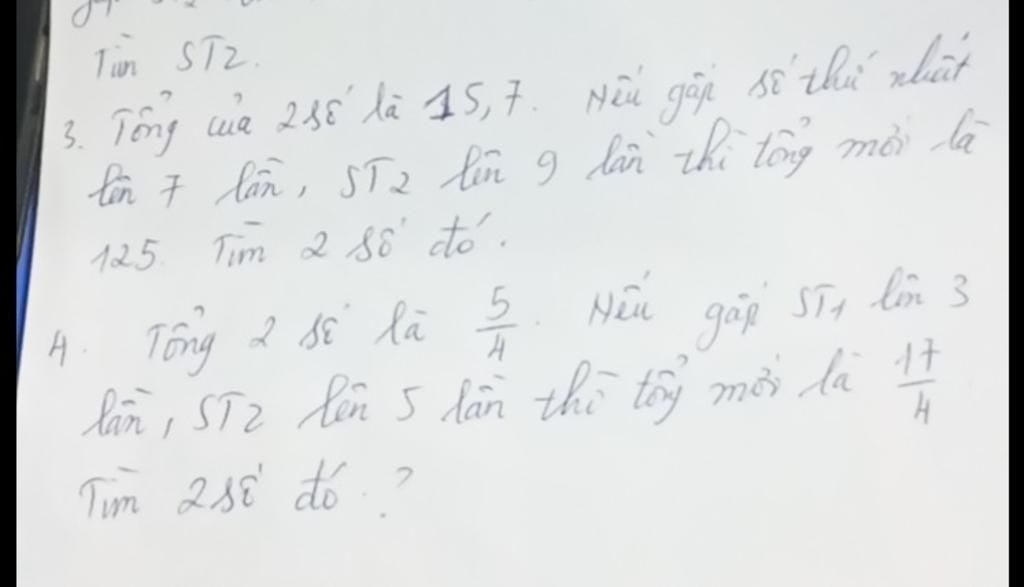 Tìm ST2.
3. Tổng của 2 số là 15,7. Nếu gấp số thứ nhất
lên 7 lần, ST2 lên 9 lần thì tổng mới là
125. Tìm 2 số đó.
4. Tổng 2 số là 5/4. Nếu gấp ST1 lên 3
lần, ST2 lên 5 lần thì tổng mới là 17/4
Tìm 2 số đó.?